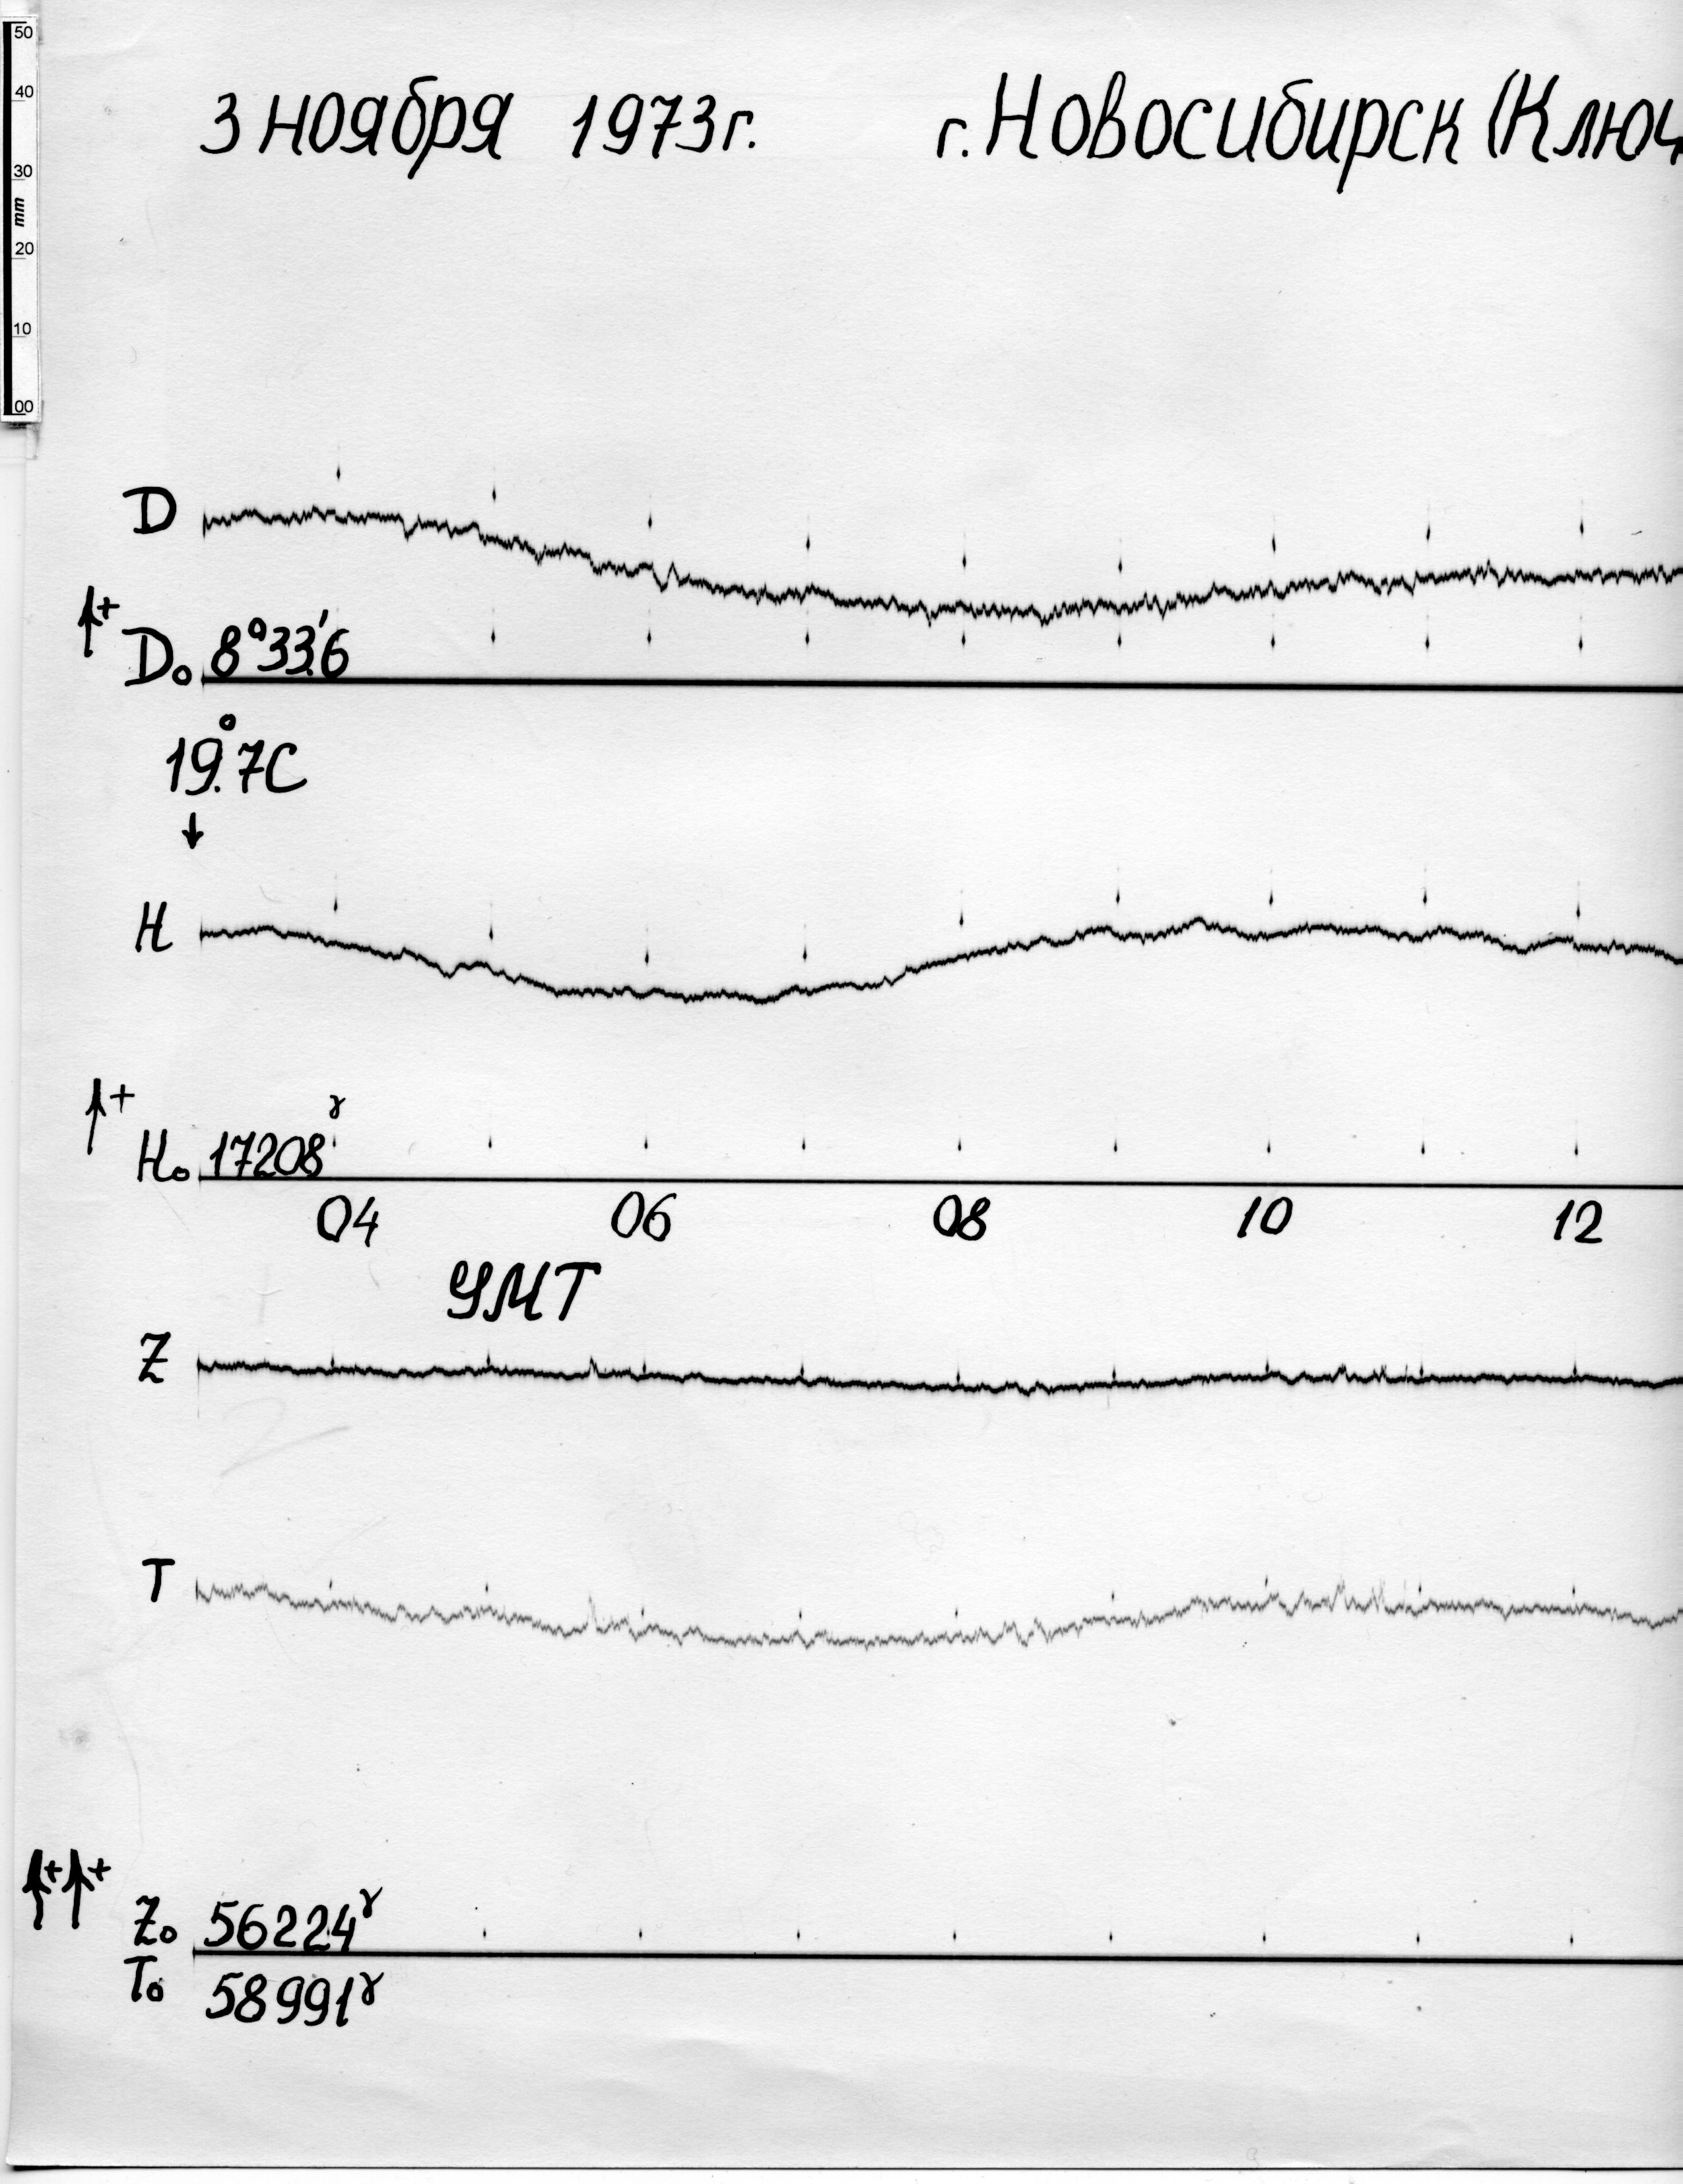 50
40
30
mm
20
10
00
3 ноября 1973г. г. Новосибирск (Ключ
D
↑+
D₀ 8°33.'6
19.°7C
↓
H
↑+
H₀ 17208γ
04 06 08 10 12
УМТ
Z
T
↑+↑+
Z₀ 56224γ
T₀ 58991γ